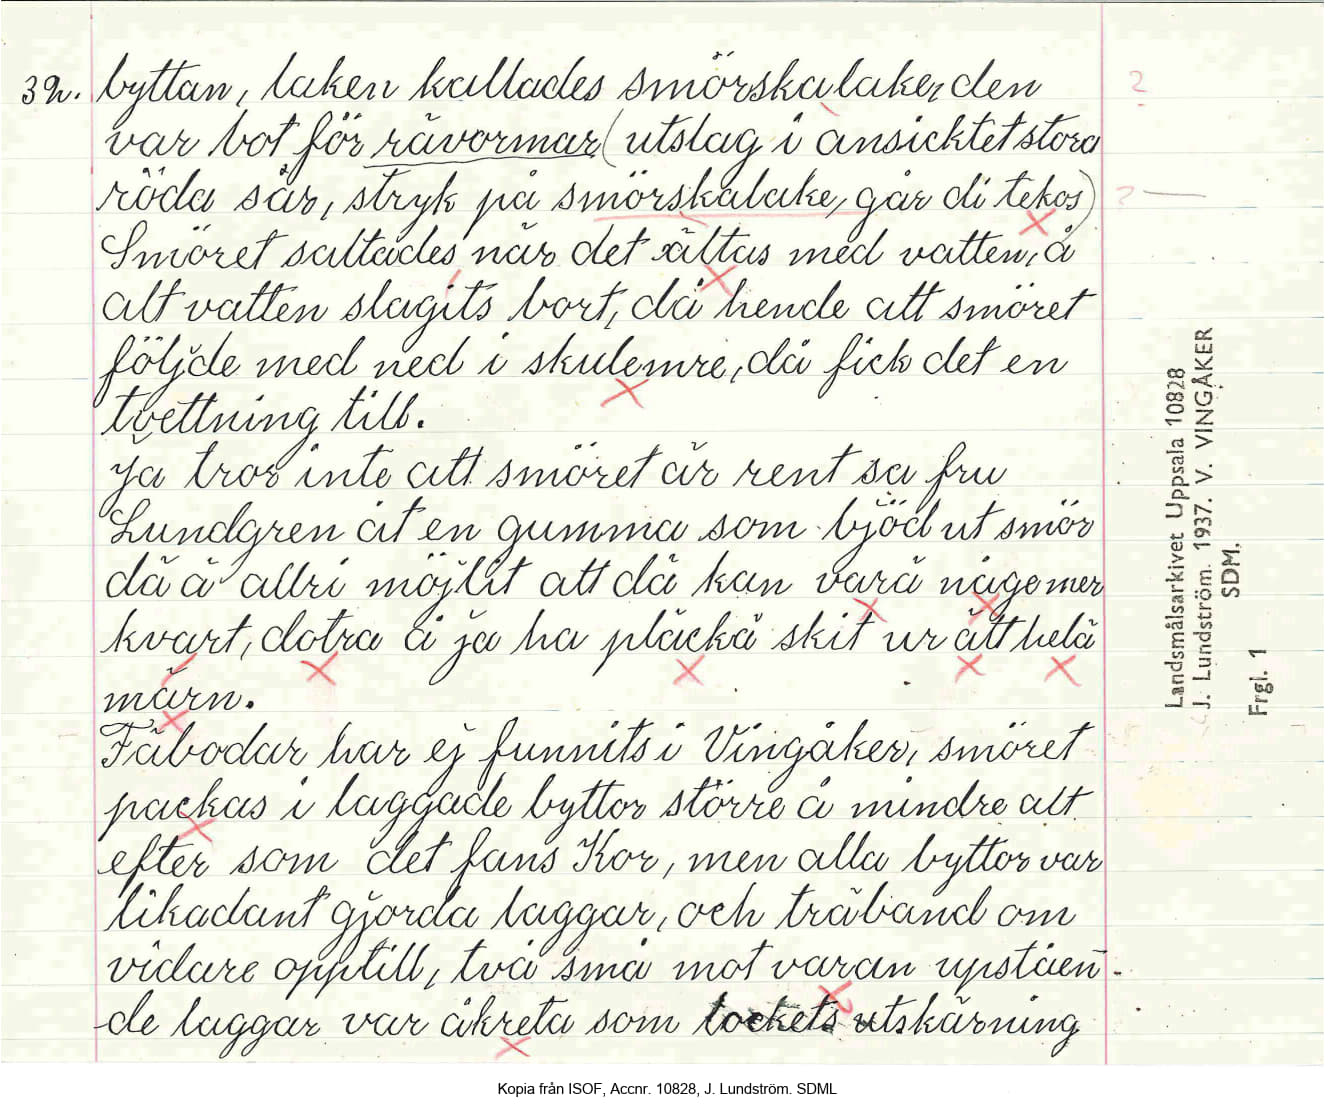 32. byttan, laken kallades smörskalaken, den
var bot för råvormar (utslag i ansicktet stora
röda sår, stryk på smörskalake, går di tekos)
Smöret saltades när det ältas med vatten, å
alt vatten slagits bort, då hende att smöret
följde med ned i skulemre, då fick det en
tvettning till.
Ja tror inte att smöret är rent sa fru
Lundgren åt en gumma som bjöd ut smör
dä ä allri möjlit att dä kan varä någe mer
kvart, dotra å ja ha pläckä skit ur ätt helä
märn.
Fäbodar har ej funnits i Vingåker, smöret
packas i laggade byttor större å mindre alt
efter som det fans Kor, men alla byttor var
likadant gjorda laggar, och träband om
vidare opptill, två små mot varan upståen-
de laggar var åkreta som lockets utskärning
?
?
Landsmålsarkivet Uppsala 10828
J. Lundström. 1937. V. VINGÅKER
SDM.
Frgl. 1
Kopia från ISOF, Accnr. 10828, J. Lundström. SDML